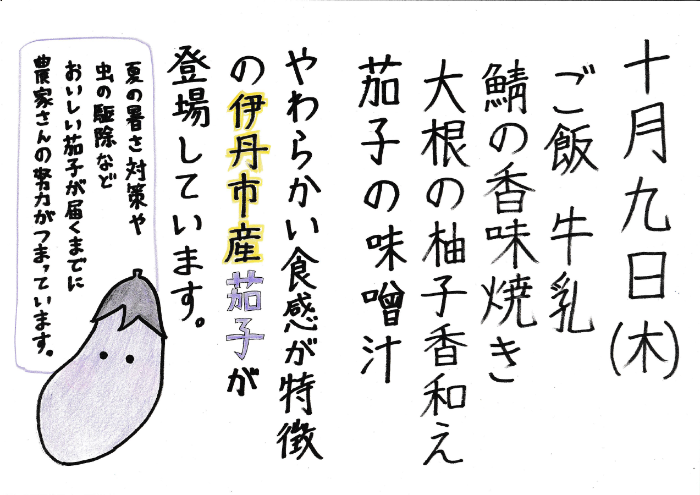 十月九日(木)
ご飯 牛乳
鯖の香味焼き
大根の柚子香和え
茄子の味噌汁
やわらかい食感が特徴
の伊丹市産茄子が
登場しています。
夏の暑さ対策や
虫の駆除など
おいしい茄子が届くまでに
農家さんの努力がつまっています。